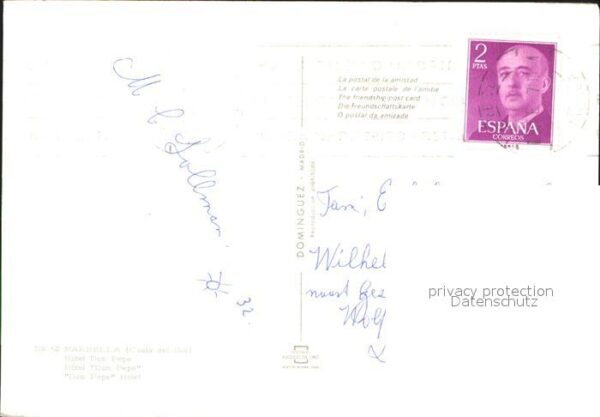 2
PTAS
ESPAÑA
CORREOS
La postal de la amistad
La carte postale de l'amitié
The friendship post card
Die Freundschaftskarte
O postal da amizade
M C Sollman
32
DOMINGUEZ - MADRID
Fam. E
Wilhel
Wolf
privacy protection
Datenschutz
MARBELLA (Costa del Sol)
Hotel Don Pepe
Hôtel "Don Pepe"
"Don Pepe" Hotel